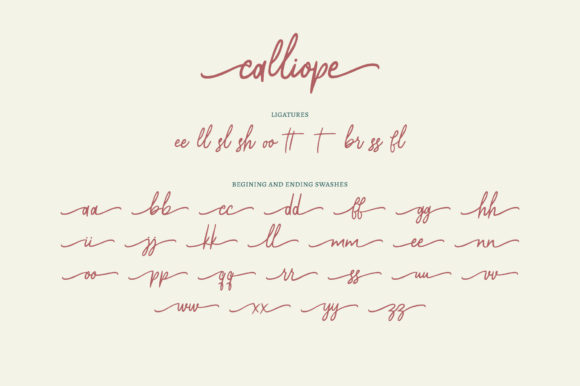 calliope
LIGATURES
ee ll sl sh oo tt t br ss fl
BEGINING AND ENDING SWASHES
aa bb cc dd ff gg hh
ii jj kk ll mm ee nn
oo pp qq rr ss uu vv
ww xx yy zz